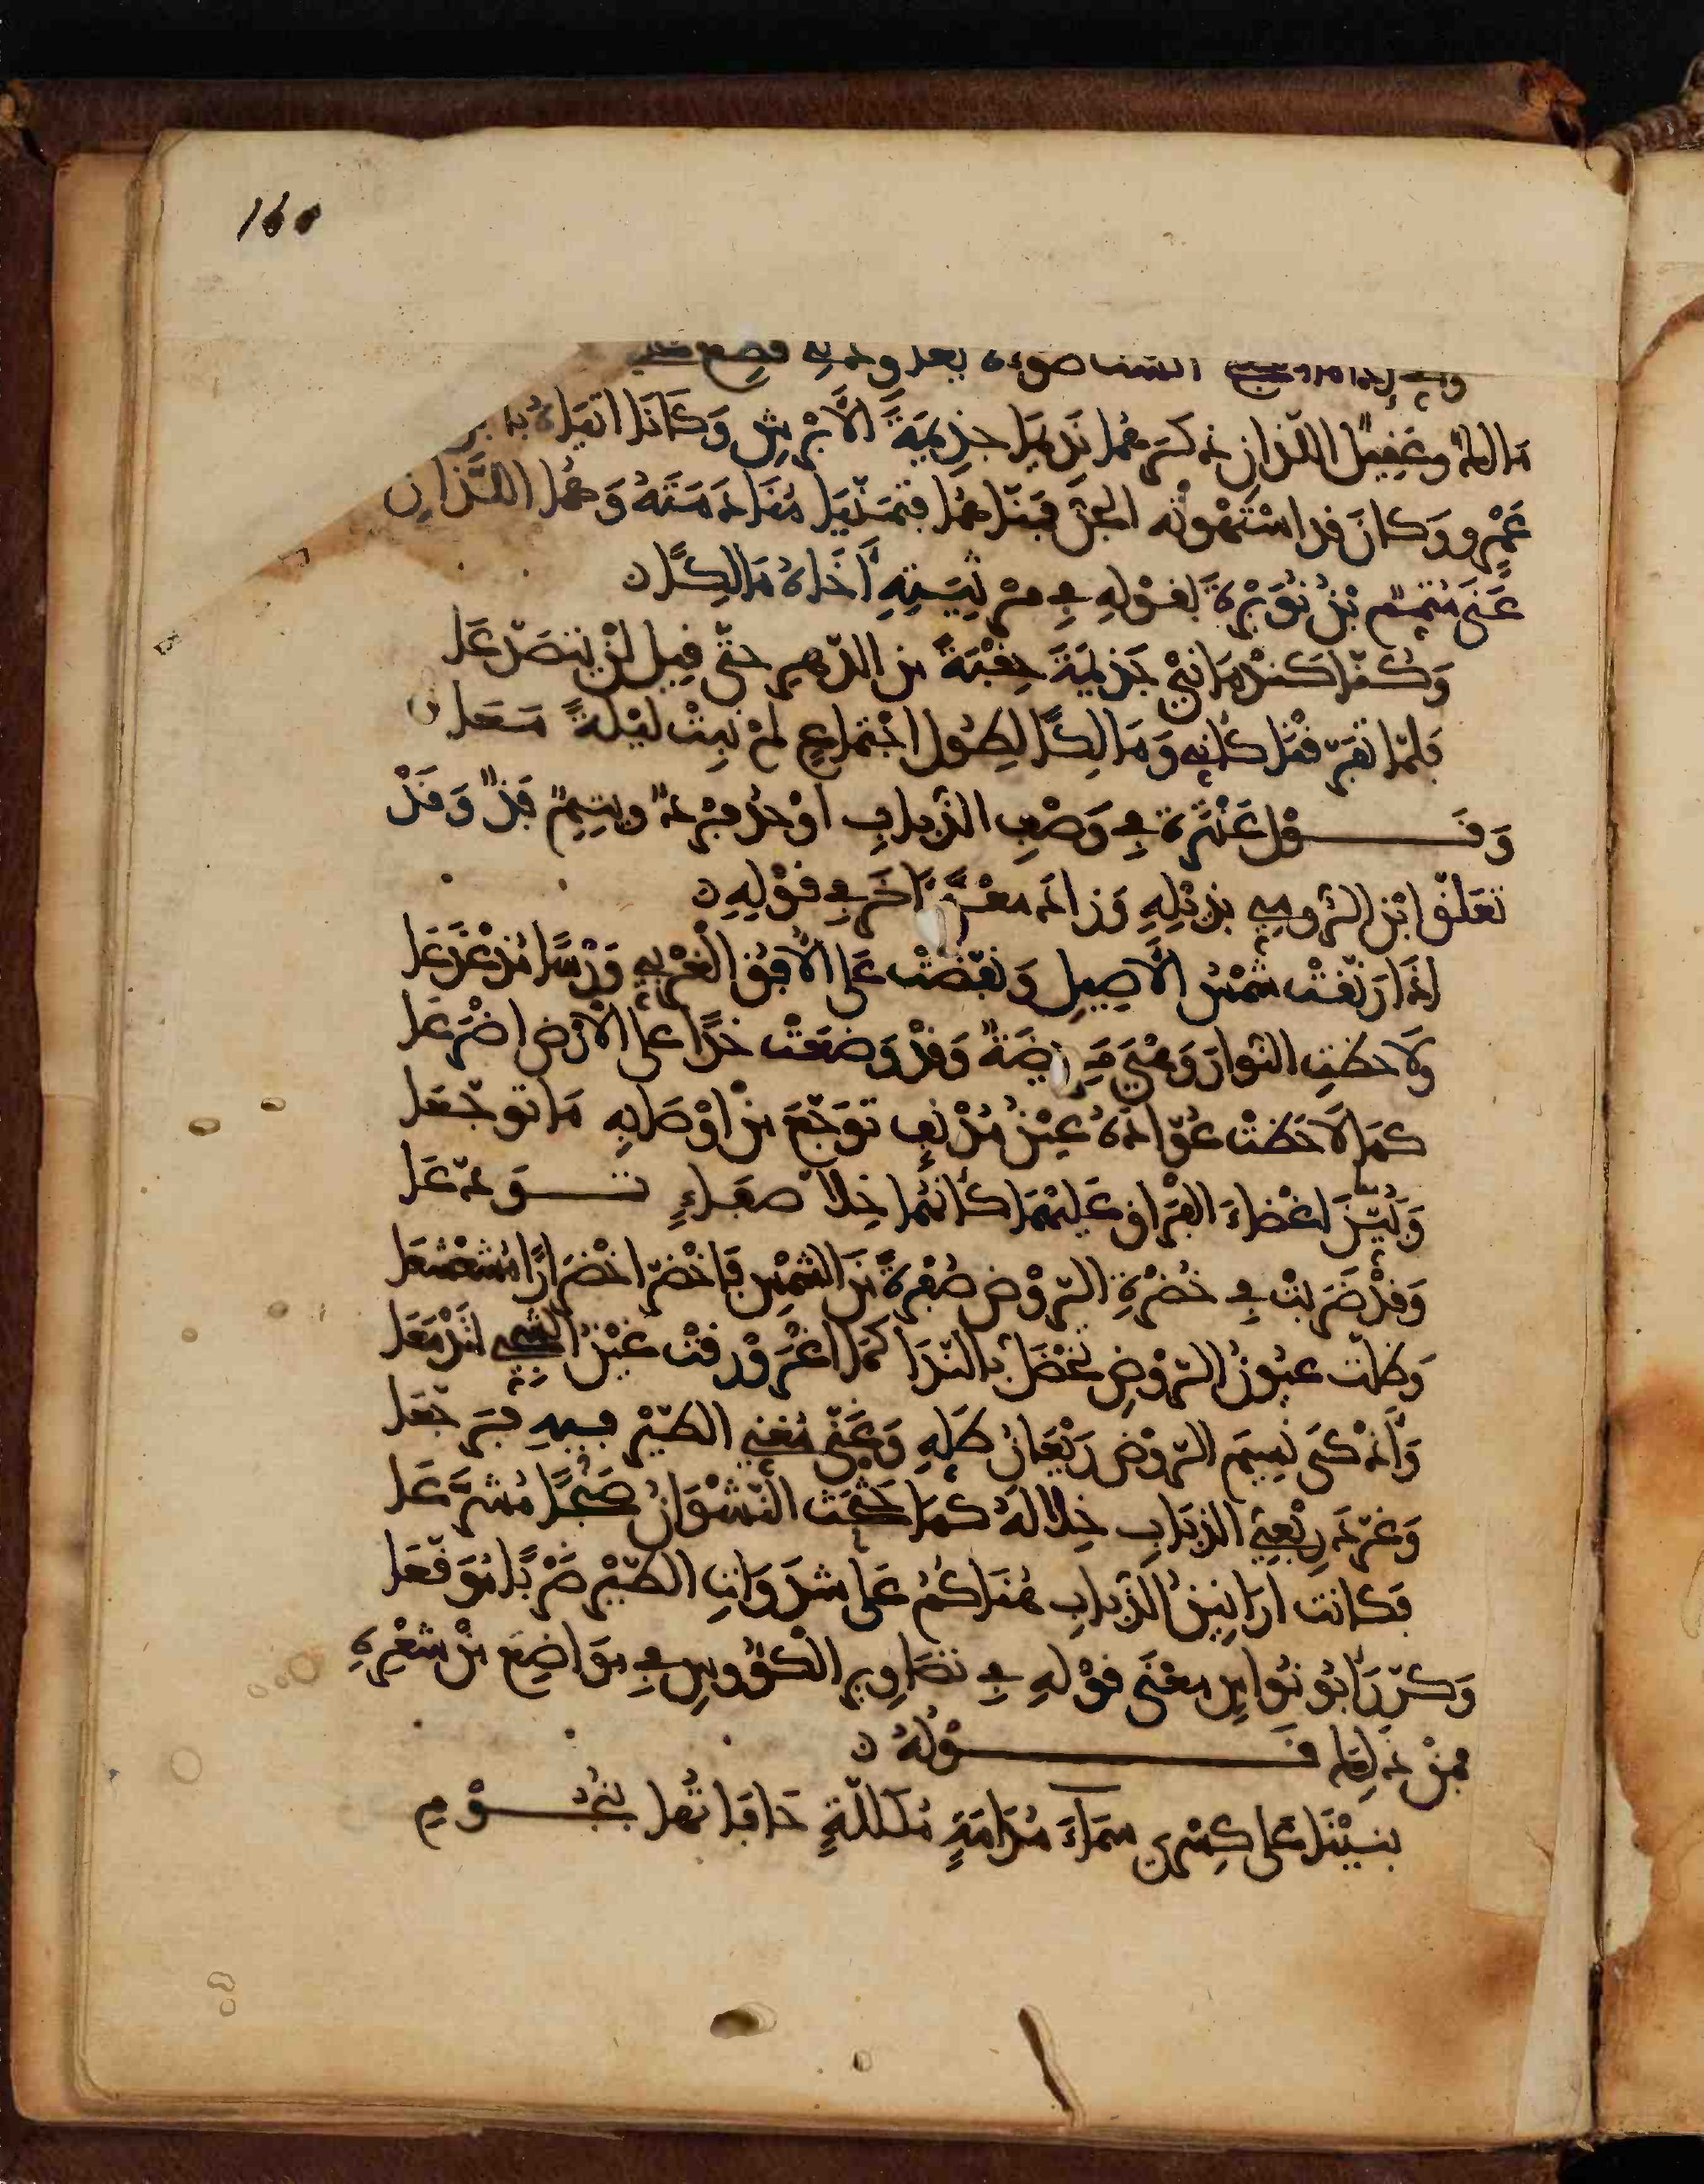 160
بعد
مالك وعقيل اللذان ذكرهما نديما جذيمة الأبرش وكانا أتياه
عمرو وكان قد استهوته الجن فمناهما فتمنيا منادمته وهما اللذان
عنى متمم بن نويرة بقوله في مرثيته أخاه مالكا
وكنا كندماني جذيمة حقبة من الدهر حتى قيل لن يتصدعا
فلما تفرقنا كأني ومالكا لطول اجتماع لم نبت ليلة معا
وقول عنترة في وصف الذباب أوحد فرد ويتيم فذ وقد
تعلق ابن الرومي بذيله وزاد معنى آخر في قوله
إذا رنقت شمس الأصيل ونفضت على الأفق الغربي ورسا مذعذعا
ولاحظت النوار وهي مريضة وقد وضعت خدا على الأرض أضرعا
كما لاحظت عواده عين مدنف توجع من أوصابه ما توجعا
وبين إغضاء الفراق عليهما كأنهما خلا صفاء تودعا
وقد ضربت في خضرة الروض صفرة من الشمس فاخضر اخضرارا مشعشعا
وظلت عيون الروض تخضل بالندا كما اغرورقت عين الشجي لتدمعا
وأذكى نسيم الروض ريعان ظله وغنى مغني الطير فيه فرجعا
وغرد ربعي الذباب خلاله كما حثحث النشوان صنجا مشرعا
فكانت أرانين الذباب هناكم على شدوات الطير ضربا موقعا
وكرر أبو نواس معنى قوله في تصاوير الكؤوس في مواضع من شعره
فمن ذلك قوله
بنينا على كسرى سماء مدامة مكللة حافاتها بنجوم